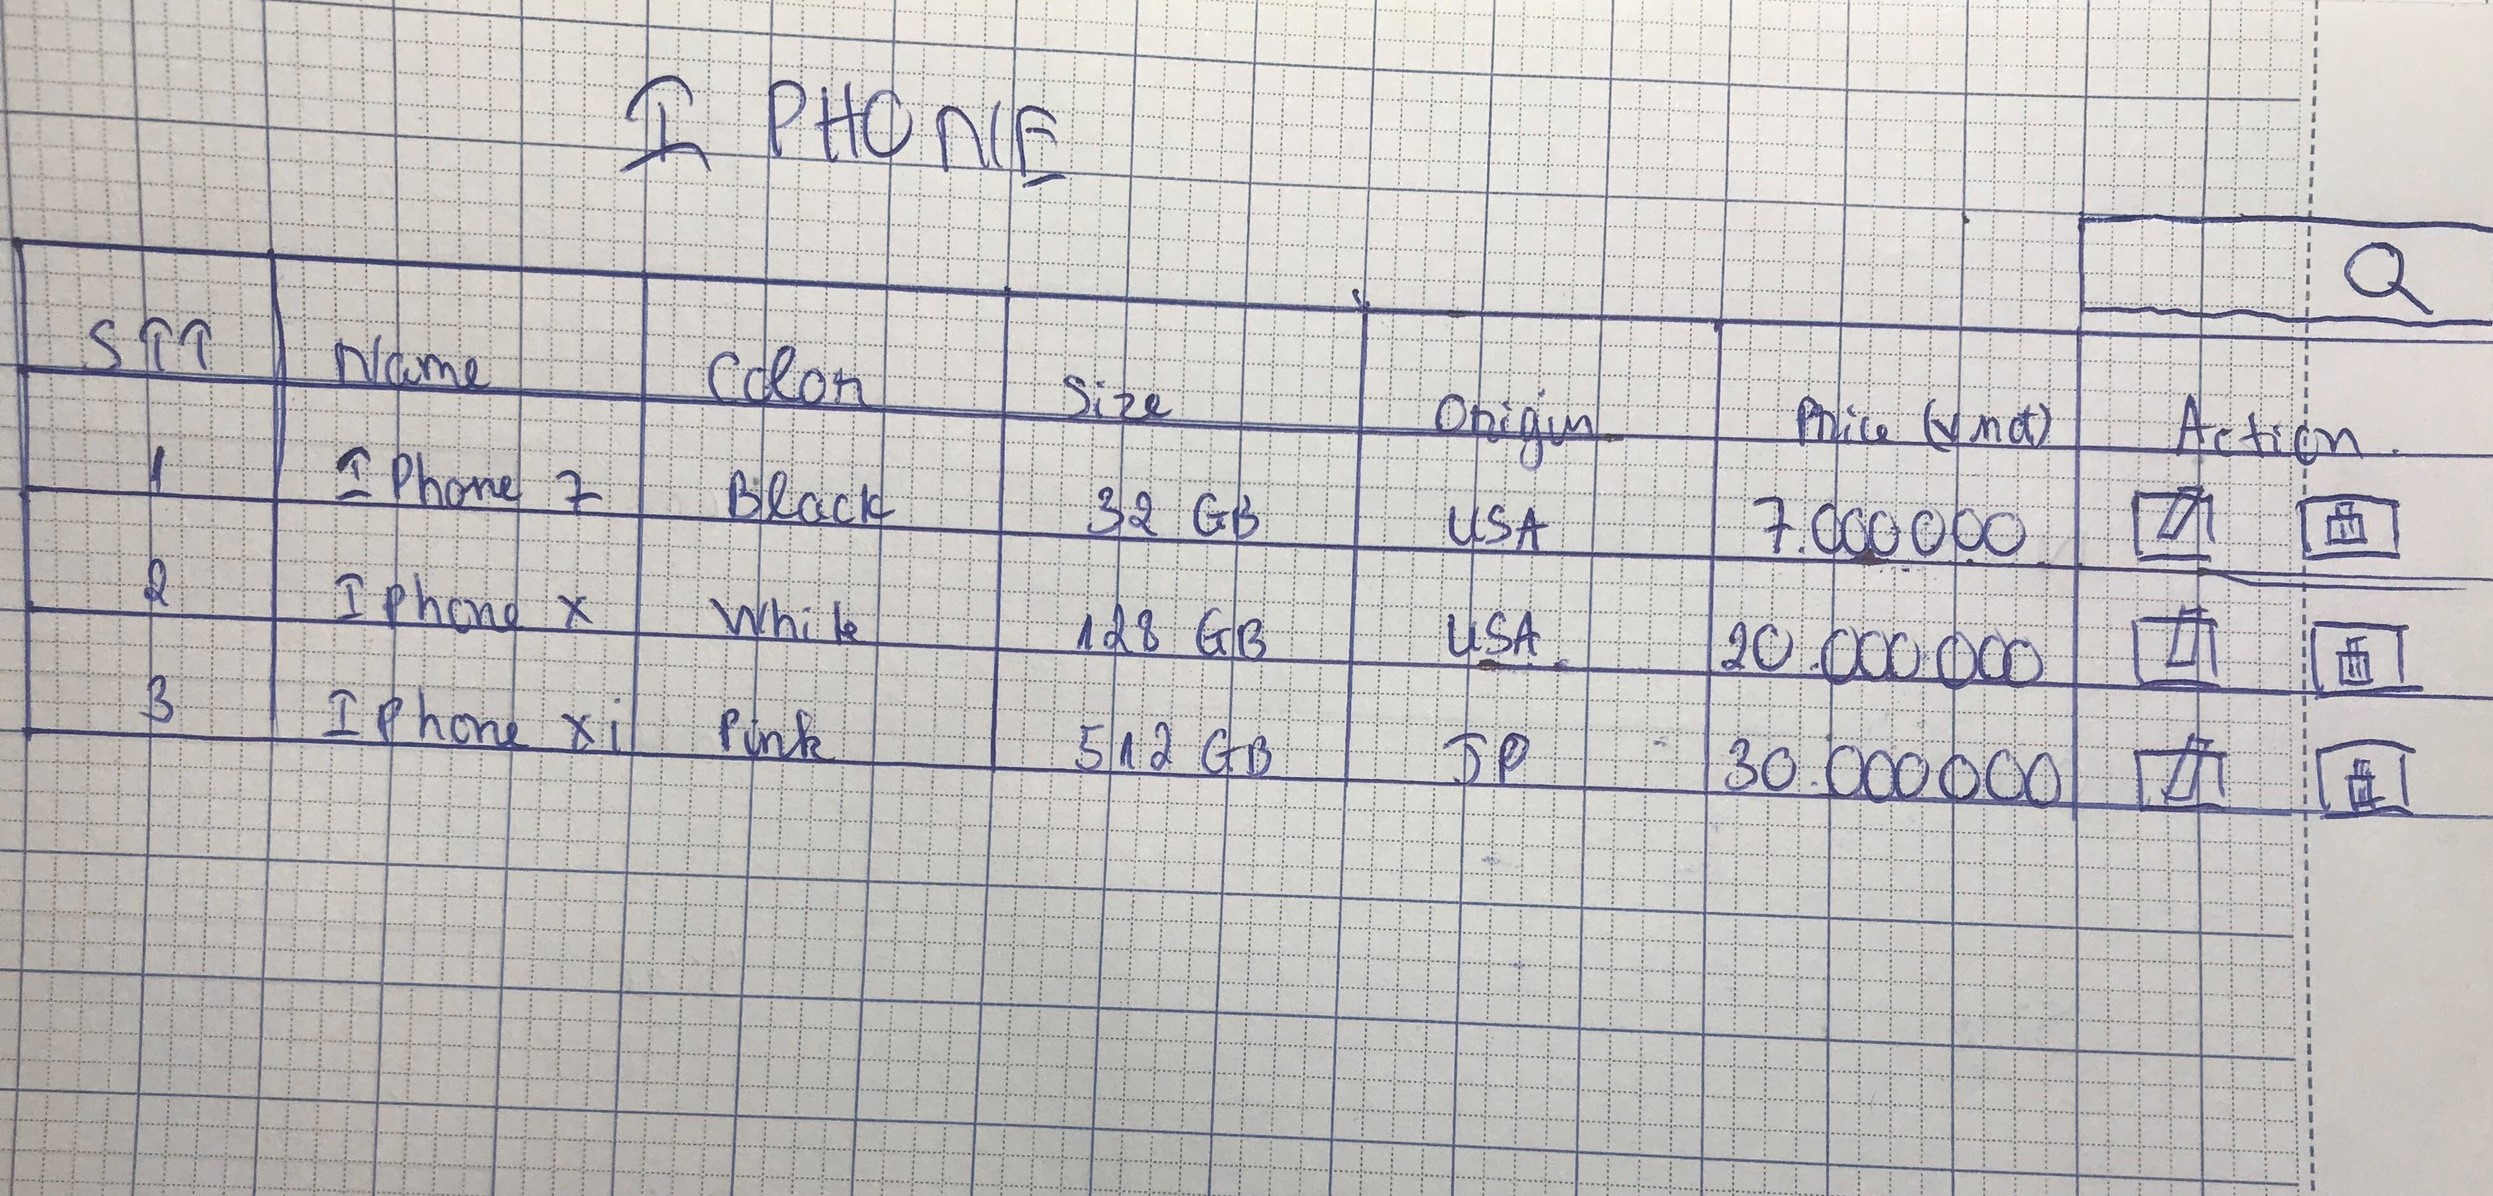 I PHONE
STT Name Color Size Origin Price (vnd) Action.
1 I Phone 7 Black 32 GB USA 7.000000
2 I Phone x White 128 GB USA 20.000000
3 I Phone xi Pink 512 GB JP 30.000000